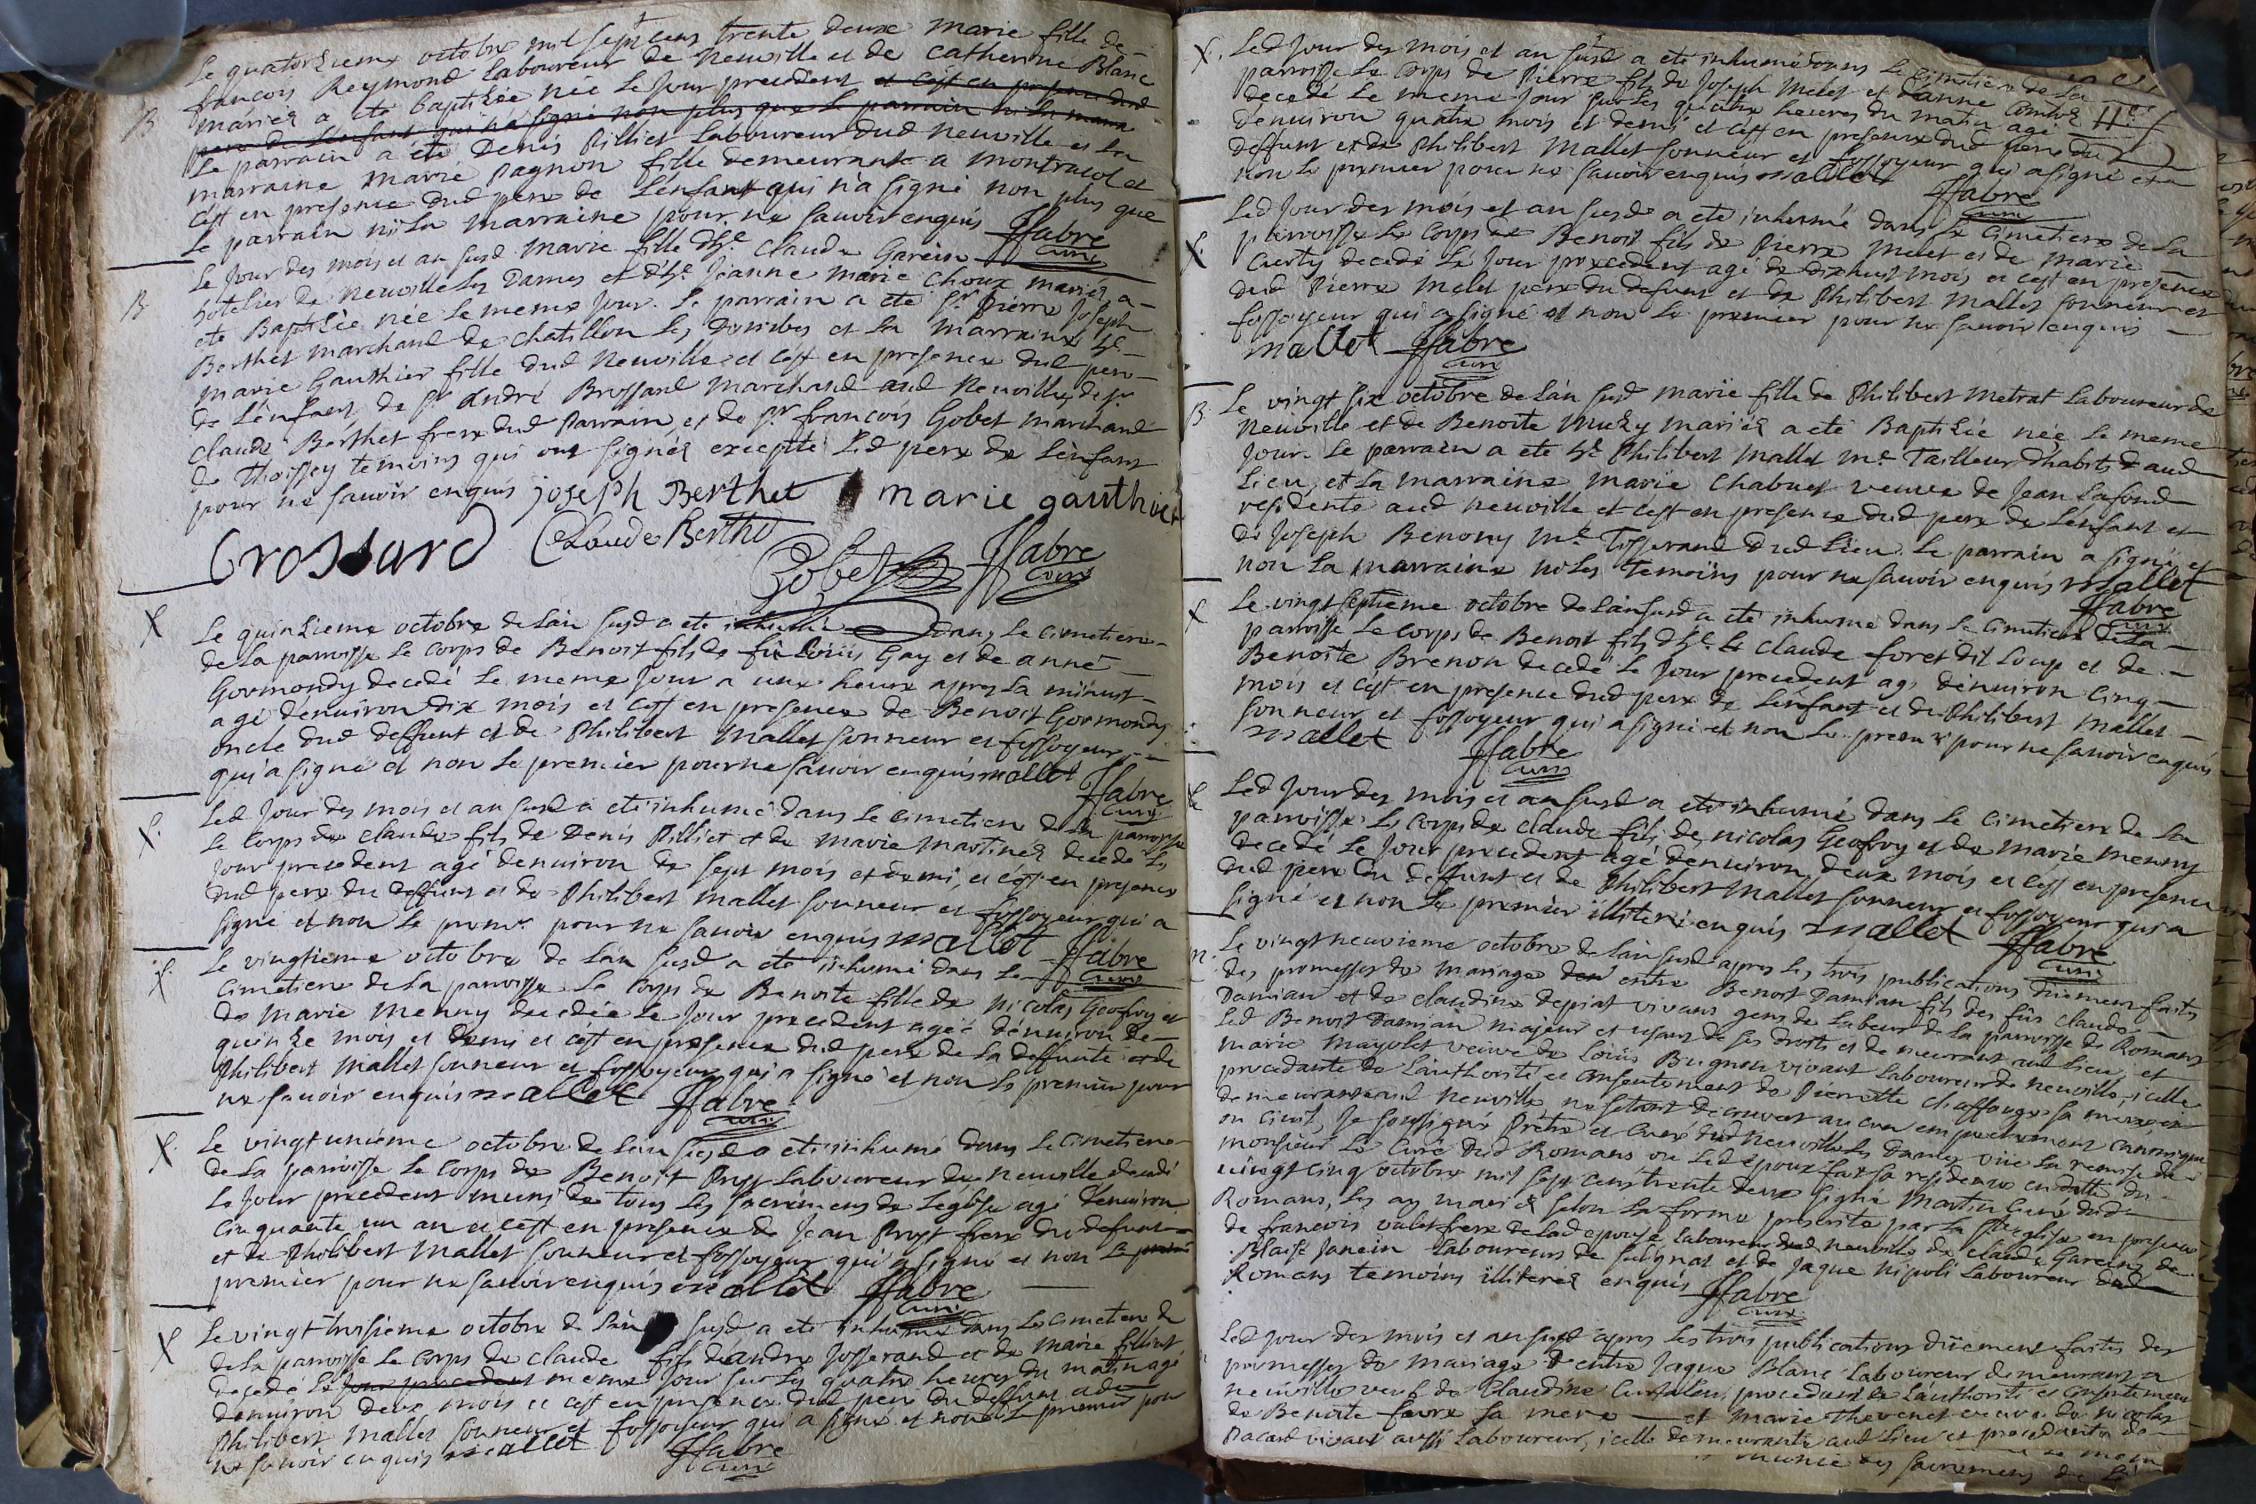 Le quatorzieme octobre mil sept cens trente deux marie fille de
francois Reymond Laboureur de Neuville et de Catherine Blanc
mariez a ete baptizée née le jour precedent et c'est en presence dud
pere de l'enfant qui n'a signé non plus que le parrain ni la marr
B Le parrain a été Denis Pilliet Laboureur dud Neuville et la
marraine marie Pagnon fille demeurante a montracol et
c'est en presence dud pere de l'enfant qui n'a signé non plus que
le parrain ni la marraine pour ne savoir enquis ffabre
curé
Le jour des mois et an susd marie fille d'h.e Claude Garein
B hotelier de Neuville les Dames et d'h.e Jeanne marie Choux mariez a
ete Baptizée née le meme jour. Le parrain a été S.r Pierre Joseph
Berthet marchand de chatillon les dombes et la marraine h.e
marie Gauthier fille dud Neuville et c'est en presence dud pere
de l'enfant, de S.r André Brossard marchand aud Neuville, de S.r
Claude Berthet frere dud Parrain, et de S.r francois Gobet marchand
de Thoissey temoins qui ont signéz excepté led pere de l'enfant
pour ne savoir enquis joseph Berthet marie gauthier
Brossard Claude Berthet
Gobet ffabre
curé
X Le quinzieme octobre de l'an susd a ete inhumé dans le cimetiere
de la parroisse le corps de Benoit fils de fû Loüis Gay et de anne
Gormondy decedé le meme jour a une heure apres la minuit
agé d'environ dix mois et c'est en presence de Benoit Gormondy
oncle dud deffunt et de Philibert Mallet sonneur et fossoyeur
qui a signé et non le premier pour ne savoir enquis mallet
ffabre
curé
Led jour des mois et an susd a ete inhumé dans le cimetiere de la parroisse
X. le corps de claude fils de Denis Pilliet et de marie martinez decedé le
jour precedent agé d'environ de sept mois et demi, et c'est en presence
dud pere du deffunt et de Philibert Mallet sonneur et fossoyeur qui a
signé et non le prem.r pour ne savoir enquis mallet ffabre
curé
X. Le vingtieme octobre de l'an susd a été inhumé dans le
cimetiere de la parroisse le corps de Benoite fille de Nicolas Geofroy et
de Marie Menny decedée le jour precedent agée d'environ de
quinze mois et demi et c'est en presence dud pere de la deffunte et de
Philibert Mallet sonneur et fossoyeur qui a signé et non le premier pour
ne savoir enquis mallet ffabre
curé
X. Le vingtunieme octobre de l'an susd a ete inhumé dans le cimetiere
de la parroisse le corps de Benoit Prost Laboureur de Neuville decedé
le jour precedent muni de tous les sacremens de l'eglise agé d'environ
cinquante un an et c'est en presence de Jean Prost frere du defunt
et de Philibert Mallet sonneur et fossoyeur qui a signé et non le
premier pour ne savoir enquis mallet ffabre
curé
X Le vingt troisieme octobre de l'an susd a eté inhumé dans le cimetiere de
de la parroisse le corps de claude fils d'andre Josserand et de marie filliot
decedé le jour precedent meme jour sur les quatre heures du matin agé
d'environ deux mois et c'est en presence dud pere du deffunt et de
Philibert Mallet sonneur et fossoyeur qui a signé et non le premier pour
ne savoir enquis mallet ffabre
curé
X. Led jour des mois et an susd a eté inhumé dans le cimetiere de la
parroisse le corps de Pierre fils de Joseph Melet et d'anne
decedé le meme jour sur les quatre heures du matin agé
d'environ quatre mois et demi et c'est en presence dud pere du
deffunt et de Philibert Mallet sonneur et fossoyeur qui a signé et
non le premier pour ne savoir enquis mallet ffabre
curé
Led jour des mois et an susd a eté inhumé dans le cimetiere de la
X. parroisse le corps de Benoit fils de Pierre Melet et de marie
decedé le jour precedent agé de dixhuit mois et c'est en presence
dud Pierre Melet pere du defunt et de Philibert Mallet sonneur et
fossoyeur qui a signé et non le premier pour ne savoir enquis
mallet ffabre
curé
Le vingt six octobre de l'an susd marie fille de Philibert Metrat Laboureur de
B. Neuville et de Benoite mariéz a eté Baptizée née le meme
jour. Le parrain a ete h.e Philibert Mallet m.e Tailleur d'habits aud
Lieu, et la marraine marie Chabuet veuve de Jean Lafond
residente aud Neuville et c'est en presence dud pere de l'enfant et
de Joseph Benony m.e Tisserand dud Lieu. Le parrain a signé et
non la marraine ni les temoins pour ne savoir enquis mallet
ffabre
curé
X Le vingt septieme octobre de l'an susd a ete inhumé dans le cimetiere de la
parroisse le corps de Benoit fils d'h.e Claude foret dit Loup et de
Benoite Brenon decedé le jour precedent agé d'environ cinq
mois et c'est en presence dud pere de l'enfant et de Philibert Mallet
sonneur et fossoyeur qui a signé et non le prem.r pour ne savoir enquis
mallet ffabre
curé
X Led jour des mois et an susd a eté inhumé dans le cimetiere de la
parroisse le corps de claude fils de nicolas Geofroy et de marie menny
decedé le jour precedent agé d'environ deux mois et c'est en presence
dud pere du deffunt et de Philibert Mallet sonneur et fossoyeur qui a
signé et non le premier illiteré enquis mallet ffabre
curé
m. Le vingt neuvieme octobre de l'an susd apres les trois publications düement faites
des promesses de mariage entre Benoit Damian fils des fûs claude
Damian et de claudine depiat vivans gens de labeur de la parroisse de Romans
Led Benoit Damian majeur et usant de ses droits et demeurant aud Lieu, et
marie mayolet veuve de Loüis Brignon vivant Laboureur de Neuville, icelle
procedante de l'authorité et consentement de Pierrette chaffange sa mere
demeurante aud Neuville ne s'etant decouvert aucun empechement canonique
ou civil, Je soussigné Prêtre et Curé dud Neuville les dames vüe la remise de
monsieur le Curé dud Romans ou led epoux fait sa residence en datte du
vingt cinq octobre mil sept cens trente deux signé Martin Curé dud
Romans, les ay mariéz selon la forme prescrite par la s.te eglise en presence
de francois frere de lad epouse Laboureur dud neuville de claude Garein de
Blaise Janein Laboureurs de Sulignat et de Jaque nipoli Laboureur dud
Romans temoins illiteréz enquis ffabre
curé
Led jour des mois et an susd apres les trois publications düement faites des
promesses de mariage d'entre Jaque Blanc Laboureur demeurant a
neuville veuf de Claudine procedant de l'authorité et consentement
de Benoite favre sa mere et marie thevenet veuve de nicolas
Pacard vivant aussi Laboureur, icelle demeurante aud Lieu et procedante de
sacremens de